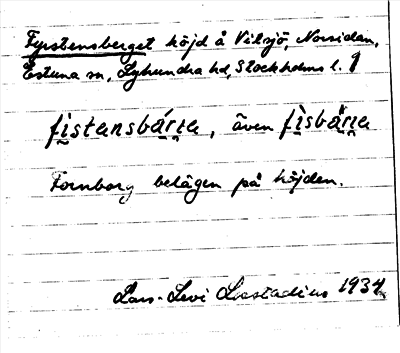 Fyrstensberget höjd å Vilsjö, Norsidan,
Estuna sn, Lyhundra hd, Stockholms l. 1
fistansbárᶇa, även fìsbárᶇa
Fornborg belägen på höjden.
Lars-Levi Læstadius 1934.